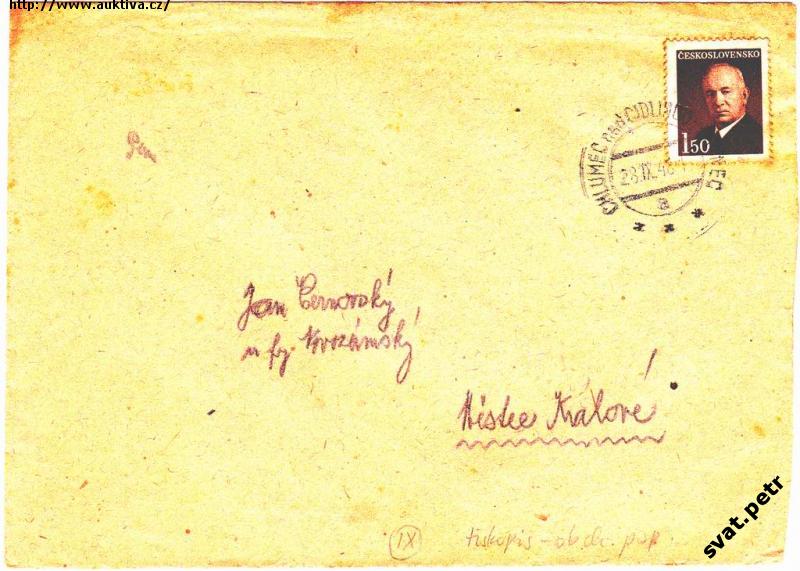 http://www.auktiva.cz/
ČESKOSLOVENSKO
1 50
CHLUMEC nad CIDLINOU
28.IX.48
a
Pan
Jan Černovský
u fy.
Městec Králové
IX
tiskopis - obch. pap.
svat.petr